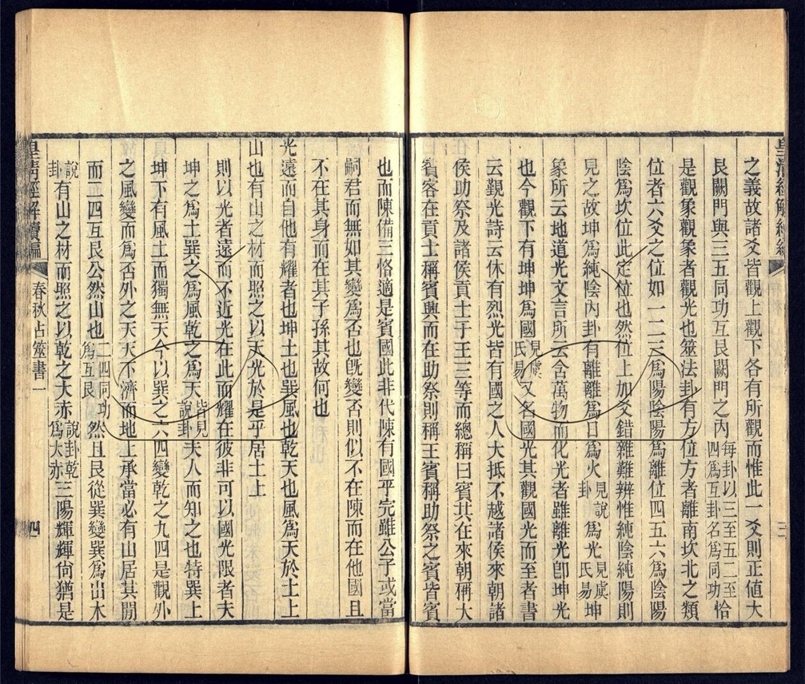 之義故諸爻皆觀上觀下各有所觀而惟此一爻則正值大
艮闕門與三五同功互艮闕門之內每卦以三至五二至四為互卦名為同功恰
是觀象觀象者觀光也筮法卦有方位方者離南坎北之類
位者六爻之位如一二三爲陽陰陽爲離位四五六爲陰陽
陰爲坎位此定位也然位上加爻錯雜難辨惟純陰純陽則
見之故坤爲純陰內卦有離離爲日爲火見說卦爲光見虞氏易坤
象所云地道光文言所云含萬物而化光者雖離光卽坤光
也今觀下有坤坤爲國見虞氏易又名國光其觀國光而至者書
云觀光詩云休有烈光皆有國之人大抵不越諸侯來朝諸
侯助祭及諸侯貢士于王三等而總稱曰賓其在來朝稱大
賓客在貢士稱賓興而在助祭則稱王賓稱助祭之賓皆賓
也而陳備三恪適是賓國此非代陳有國乎完雖公子或當
嗣君而無如其變爲否也旣變否則似不在陳而在他國且
不在其身而在其子孫其故何也
光遠而自他有耀者也坤土也巽風也乾天也風爲天於土上
山也有山之材而照之以天光於是乎居土上
則以光者遠而不近光在此而耀在彼非可以國光限者夫
坤之爲土巽之爲風乾之爲天皆見說卦夫人而知之也特巽上
坤下有風土而獨無天今以巽之六四變乾之九四是觀外
之風變而爲否外之天天不濟而地上承當必有山居其間
而二四互艮公然山也二四同功爲互艮然且艮從巽變巽爲出木
說卦有山之材而照之以乾之大赤說卦乾爲大赤三陽輝輝尙猶是
皇清經解續編
春秋占筮書一
四